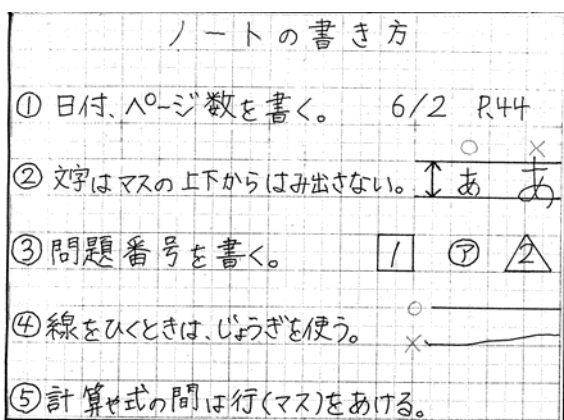 ノートの書き方
① 日付、ページ数を書く。 6/2 P.44
○ ×
② 文字はマスの上下からはみ出さない。 あ あ
③ 問題番号を書く。 1 ㋐ 2
○
④ 線をひくときは、じょうぎを使う。
×
⑤ 計算や式の間は行(マス)をあける。